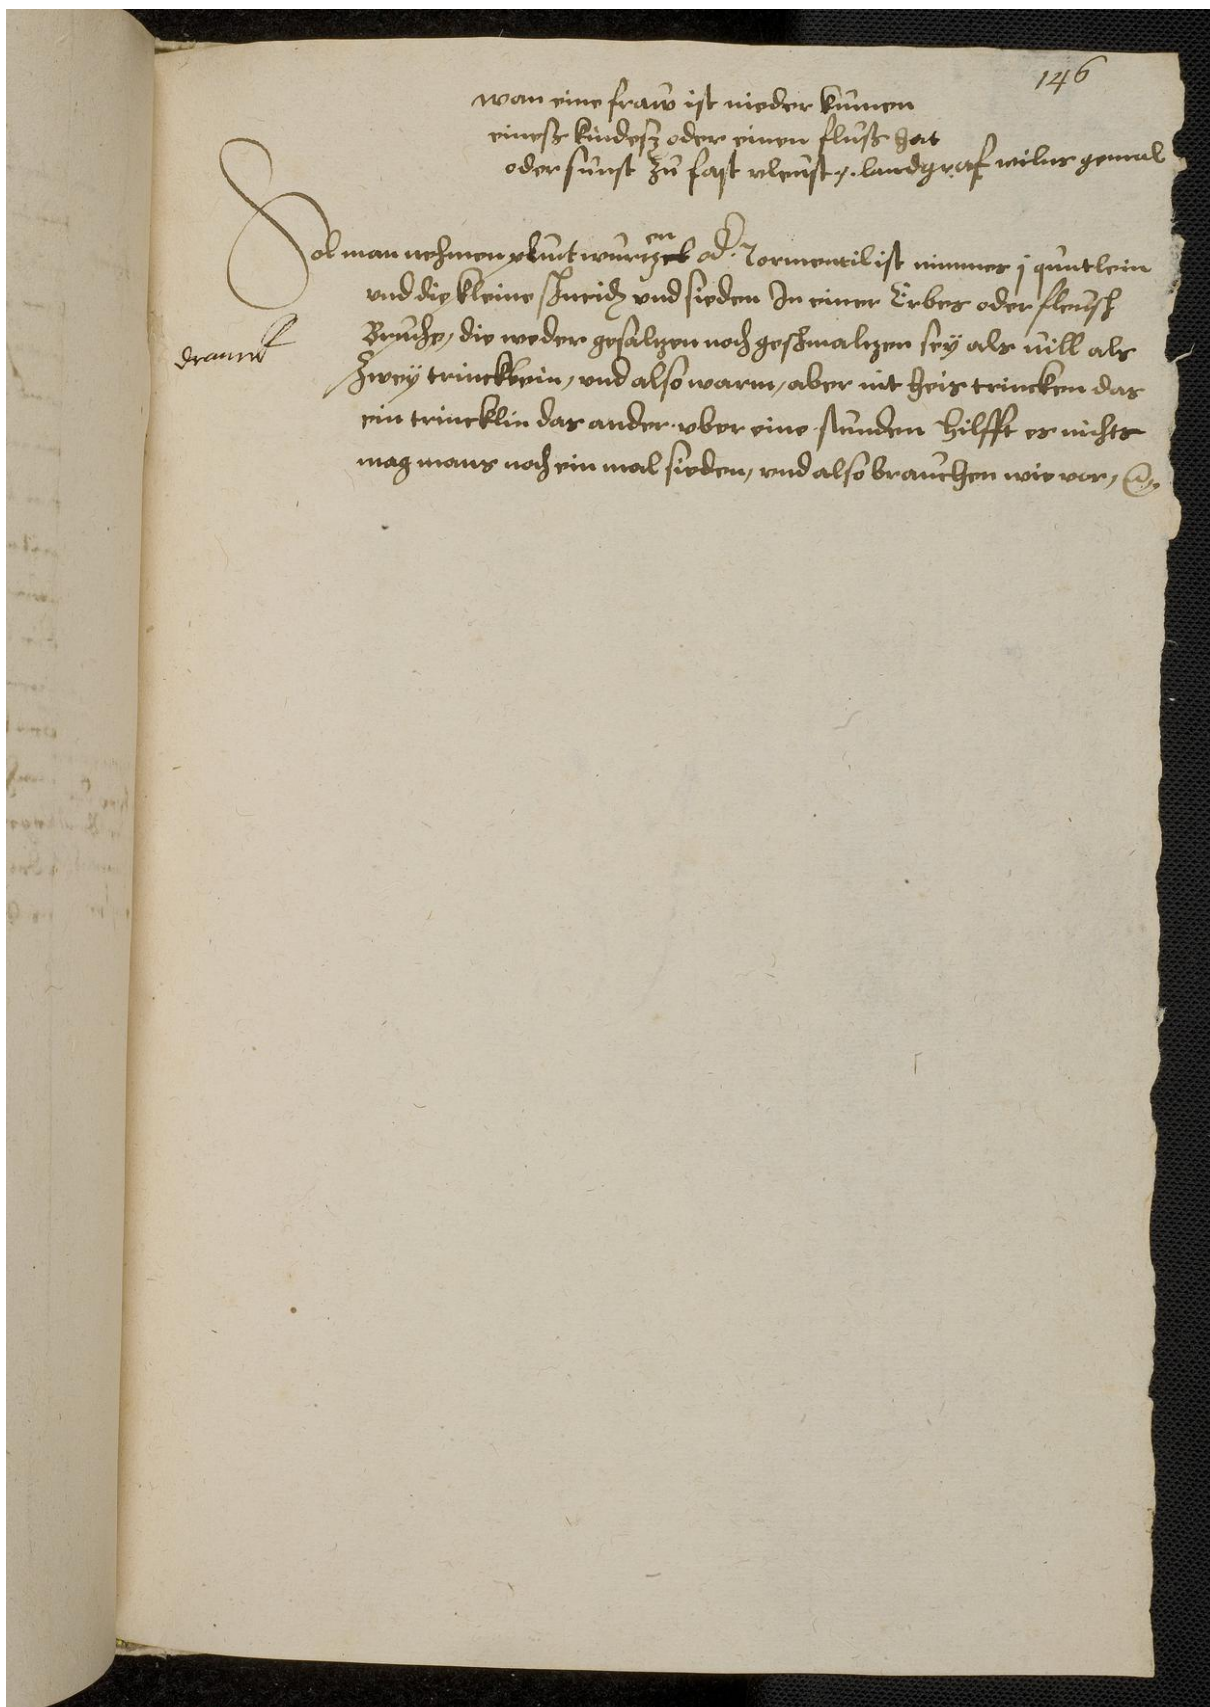 146
wan eine fraw ist nieder kumen
einesz kindesz oder einen flusz hat
oder sunst zu fast vleust landgraf wilms gemal
Sol man nehmen blutwurtzen od Tormentil ist nimmer j quntlein
vnd die kleine schneid vnd sieden In einer Erbes oder fleisch
Bruhe, die weder gesaltzen noch geschmaltzen sey als vill als
Zwey trincklein, vnd also warm, aber nit heis trincken das
ein trincklin das ander vber eine stunden hilfft es nichts
mag mans noch ein mal sieden, vnd also brauchen wie vor,